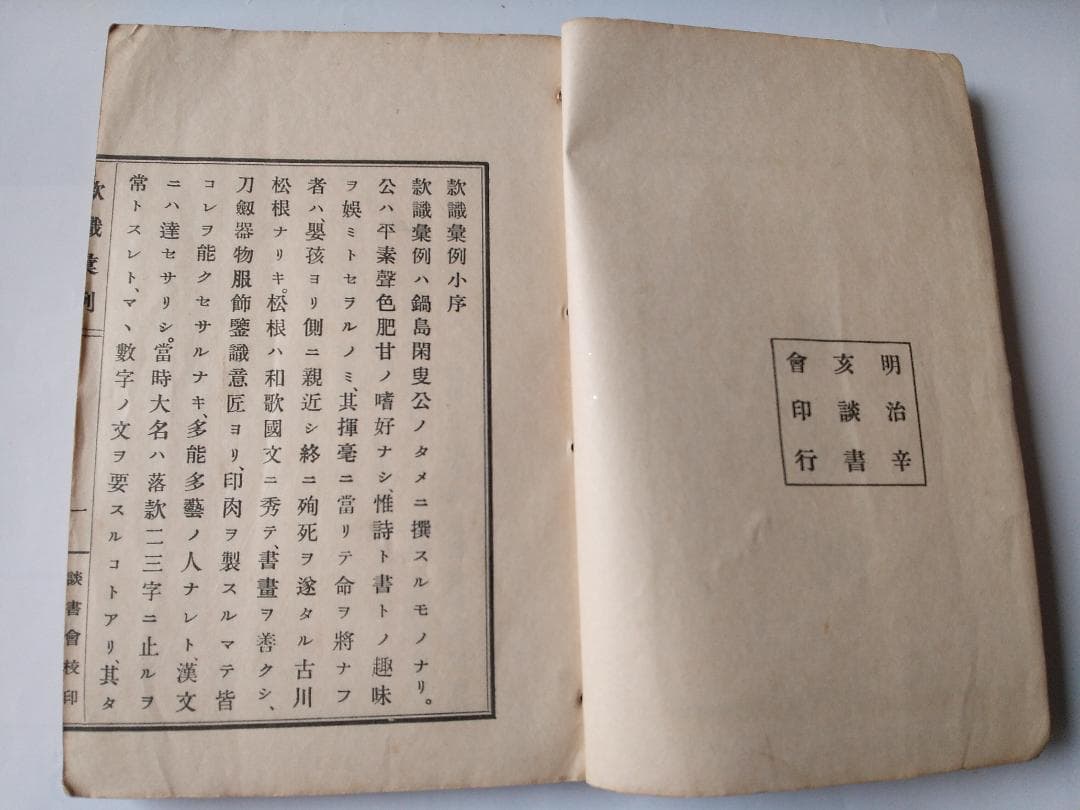 明治辛
亥談書
會印行
款識彙例小序
款識彙例ハ鍋島閑叟公ノタメニ撰スルモノナリ。
公ハ平素聲色肥甘ノ嗜好ナシ、惟詩ト書トノ趣味
ヲ娯ミトセヲルノミ、其揮毫ニ當リテ命ヲ將ナフ
者ハ、嬰孩ヨリ側ニ親近シ終ニ殉死ヲ遂タル古川
松根ナリキ。松根ハ和歌國文ニ秀テ、書畫ヲ善クシ、
刀劔器物服飾鑒識意匠ヨリ、印肉ヲ製スルマテ皆
コレヲ能クセサルナキ、多能多藝ノ人ナレト、漢文
ニハ達セサリシ。當時大名ハ落款一二三字ニ止ルヲ
常トスレト、マヽ數字ノ文ヲ要スルコトアリ、其タ
款識彙例
一
談書會校印